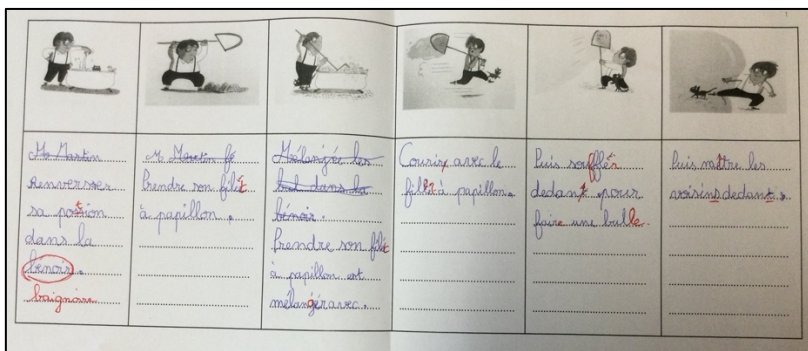 Mr Martin
Renverser
sa potion
dans la
benoir.
baignoire
Mr Martin fé
Prendre son filét
à papillon.
Mélangée les
dans la
bénoir.
Prendre son filé
à papillon et
mélanger avec.
Courir avec le
filet à papillon.
Puis souffler
dedans pour
faire une bulle.
Puis mettre les
voisins dedans.